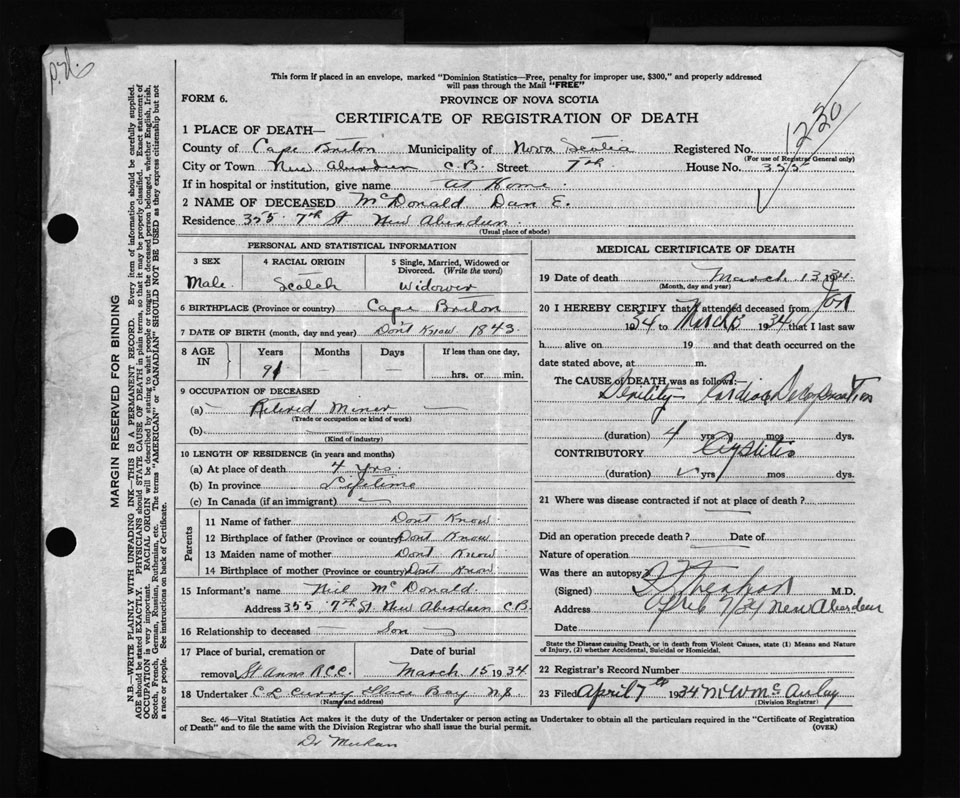 This form if placed in an envelope, marked "Dominion Statistics—Free, penalty for improper use, $300," and properly addressed
will pass through the Mail "FREE"
FORM 6.
PROVINCE OF NOVA SCOTIA
CERTIFICATE OF REGISTRATION OF DEATH
1230
1 PLACE OF DEATH—
County of Cape Breton Municipality of Nova Scotia Registered No.
(For use of Registrar General only)
City or Town New Aberdeen C.B. Street 7th House No. 355
If in hospital or institution, give name At Home.
2 NAME OF DECEASED McDonald Dan E.
Residence 355 7th St New Aberdeen.
(Usual place of abode)
MARGIN RESERVED FOR BINDING
N.B.—WRITE PLAINLY WITH UNFADING INK—THIS IS A PERMANENT RECORD. Every item of information should be carefully supplied.
AGE should be stated EXACTLY. PHYSICIANS should STATE CAUSE OF DEATH in plain terms, so that it may be properly classified. Exact statement of
OCCUPATION is very important. RACIAL ORIGIN will be described by stating to what people or tongue the deceased person belonged, whether English, Irish,
Scotch, French, German, Russian, Ruthenian, etc. The terms "AMERICAN" or "CANADIAN" SHOULD NOT BE USED as they express citizenship but not
a race or people. See instructions on back of Certificate.
PERSONAL AND STATISTICAL INFORMATION
3 SEX
Male.
4 RACIAL ORIGIN
Scotch
5 Single, Married, Widowed or
Divorced. (Write the word)
Widower
6 BIRTHPLACE (Province or country) Cape Breton
7 DATE OF BIRTH (month, day and year) Don't Know 1843.
8 AGE
IN
Years Months Days If less than one day,
91 — — hrs. or min.
9 OCCUPATION OF DECEASED
(a) Retired Miner
(Trade or occupation or kind of work)
(b)
(Kind of industry)
10 LENGTH OF RESIDENCE (in years and months)
(a) At place of death 4 yrs.
(b) In province Lifetime
(c) In Canada (if an immigrant)
Parents
11 Name of father Dont Know.
12 Birthplace of father (Province or country) Dont Know
13 Maiden name of mother Dont Know
14 Birthplace of mother (Province or country) Dont Know
15 Informant's name Neil McDonald.
Address 355 7th St. New Aberdeen C.B.
16 Relationship to deceased Son
17 Place of burial, cremation or Date of burial
removal St Anns R.C.C. March 15 1934
18 Undertaker C L Curry Glace Bay N.S.
(Name and address)
MEDICAL CERTIFICATE OF DEATH
19 Date of death March 13 1934.
(Month, day and year)
20 I HEREBY CERTIFY that I attended deceased from Jan
1934 to March 1934 that I last saw
h alive on 19 and that death occurred on the
date stated above, at m.
The CAUSE of DEATH was as follows:—
Senility Cardiac Decompensation
(duration) 4 yrs mos dys.
CONTRIBUTORY Cystitis
(duration) yrs mos dys
21 Where was disease contracted if not at place of death?
Did an operation precede death? Date of
Nature of operation
Was there an autopsy?
(Signed) M.D.
Address April 7/34 New Aberdeen
Date
State the Disease causing Death, or in death from Violent Causes, state (1) Means and Nature
of Injury, (2) whether Accidental, Suicidal or Homicidal.
22 Registrar's Record Number
23 Filed April 7th 1934 McAulay
(Division Registrar)
Sec. 46—Vital Statistics Act makes it the duty of the Undertaker or person acting as Undertaker to obtain all the particulars required in the "Certificate of Registration
of Death" and to file the same with the Division Registrar who shall issue the burial permit.
(OVER)
Dr Meehan